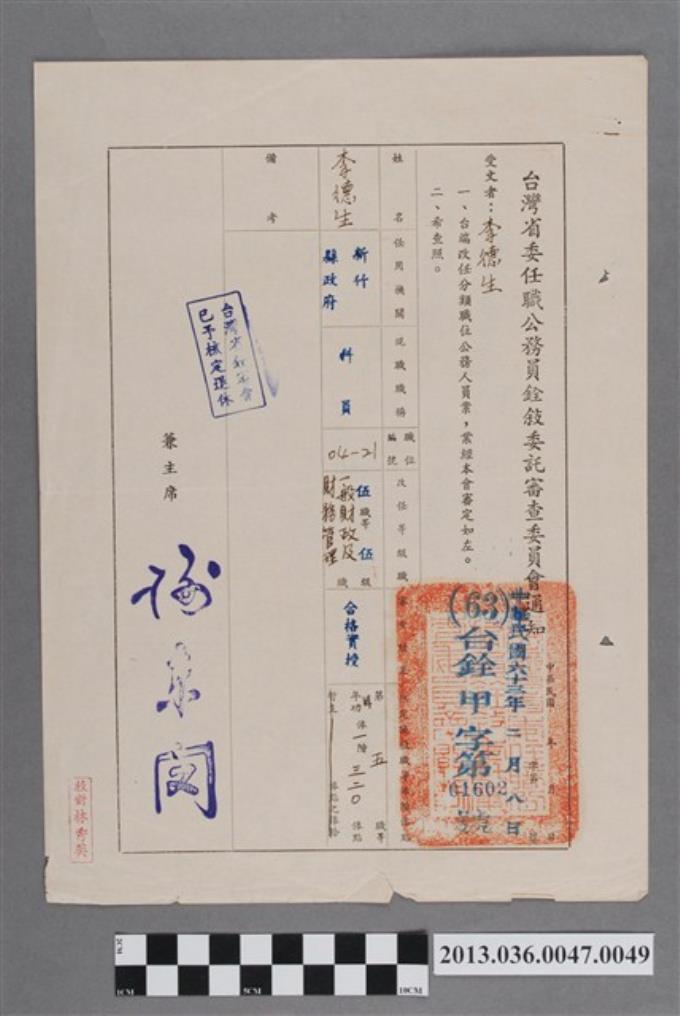 台灣省委任職公務員銓敍委託審查委員會通知
中華民國六十三年二月八日
(63)台銓甲字第01602號
受文者：李德生
一、台端改任分類職位公務人員案，業經本會審定如左。
二、希查照。
姓名
李德生
任用機關
新竹
縣政府
現職職務
科員
職位
編號
04-21
改任等級職
伍職等伍級
一般財政及
財務管理
職
合格實授
第五職等
年功俸一階三二〇俸點
備考
已予核定退休
兼主席
校對林秀英
2CM
1CM
5CM
10CM
2013.036.0047.0049